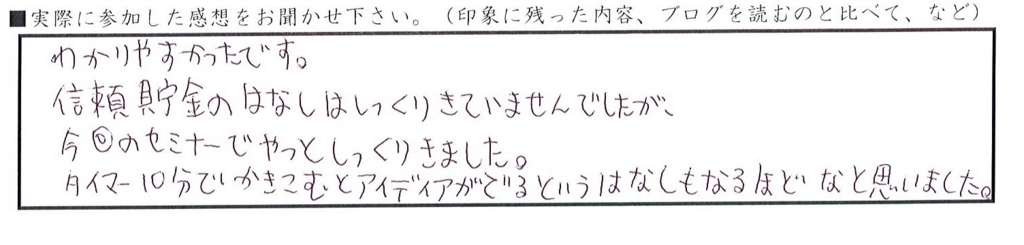 ■実際に参加した感想をお聞かせ下さい。（印象に残った内容、ブログを読むのと比べて、など）
わかりやすかったです。
信頼貯金のはなしはしっくりきていませんでしたが、
今回のセミナーでやっとしっくりきました。
タイマー10分でかきこむとアイディアがでるというはなしもなるほどなと思いました。